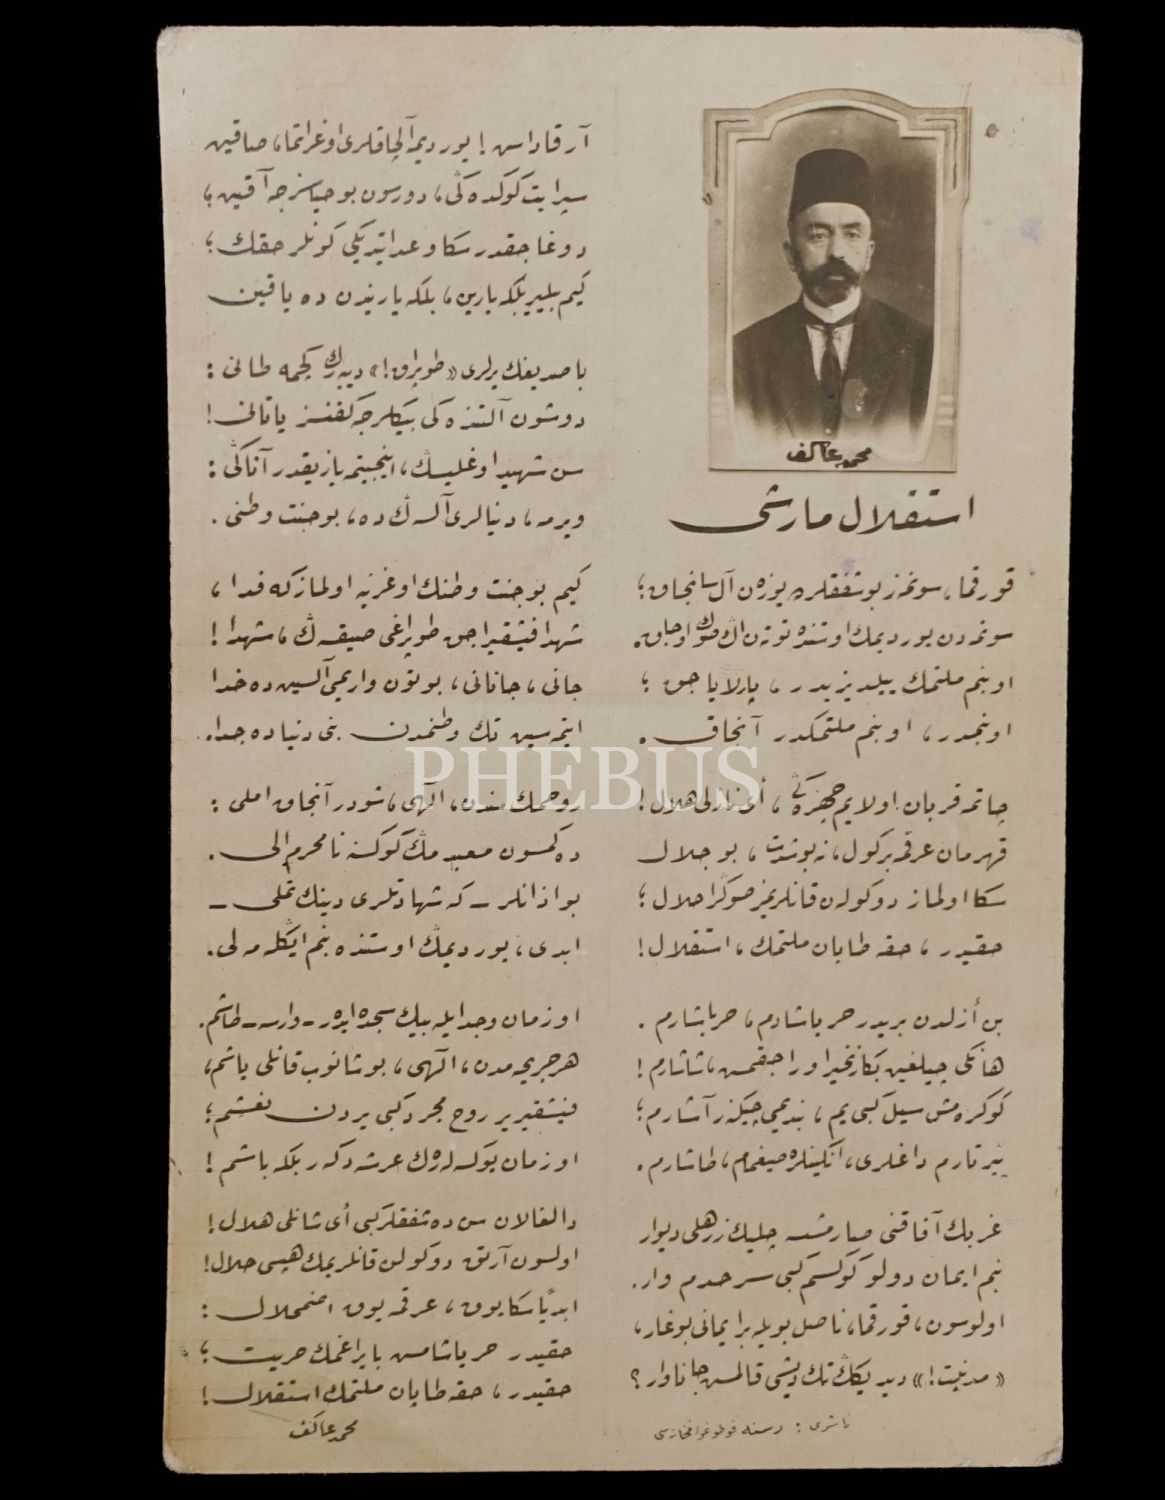 محمد عاكف
استقلال مارشى
قورقما، سونمز بو شفقلرده يوزن آل سانجاق؛
سونمدن يورديمك اوستنده توتن اڭ صوڭ اوجاق.
او بنم ملتمك ييلديزيدر، پارلاياجق؛
او بنمدر، او بنم ملتمكدر آنجاق.
چاتمه قربان اولايم چهره ڭى، أى نازلى هلال!
قهرمان عرقمه بر كول، نه بو شدت، بو جلال
سكا اولماز دوكولن قانلريمز صوڭرا حلال؛
حقيدر، حقه طاپان ملتمك، استقلال!
بن أزلدن بريدر حر ياشادم، حر ياشارم.
هانكى چيلغين بكا زنجير اوراجقمش، شاشارم!
كوكره مش سيل كبى يم، بنديمى چيكنر آشارم؛
ييرتارم داغلرى، انكينلره صيغمام، طاشارم.
غربك آفاقنى صارمشسه چليك زرهلى ديوار
بنم ايمان دولو كوكسم كبى سرحدم وار.
اولوسون، قورقما، ناصل بويله بر ايمانى بوغار،
«مدنيت!» ديديكڭ تك ديشى قالمش جاناوار؟
ناشرى: رسنه فوطوغرافخانه سى
آرقاداش! يورديمه آلچاقلرى اوغراتما، صاقين
سپر ايت كوكده ڭى، دورسون بو حياسزجه آقين؛
دوغاجقدر سكا وعد ايتديكى كونلر حقك؛
كيم بيلير بلكه يارين، بلكه ياريندن ده ياقين
باصديغك يرلرى «طوپراق!» ديه رك كچمه طانى:
دوشون آلتنده كى بيكلرجه كفنسز ياتانى!
سن شهيد اوغليسڭ، اينجيتمه يازيقدر آتاڭى:
ويرمه، دنيالرى آلسه ڭ ده، بو جنت وطنى.
كيم بو جنت وطنك اوغرينه اولماز كه فدا،
شهدا فيشقيراجق طوپراغى صيقسه ڭ، شهدا!
جانى، جانانى، بوتون واريمى آلسين ده خدا
ايتمه سين تك وطنمدن بنى دنياده جدا.
روحمك سندن، الٓهى، شودر آنجاق املى:
دكمسون معبديمڭ كوكسنه نامحرم الى.
بو اذانلر ـ كه شهادتلرى دينك تملى ـ
ابدى، يورديمڭ اوستنده بنم ايكله مه لى.
او زمان وجد ايله بيك سجده ايدر ـ وارسه ـ طاشم.
هر جريحه مدن، الٓهى، بوشانوب قانلى ياشم،
فيشقيرير روح مجرد كبى يردن نعشم؛
او زمان يوكسله رك عرشه دكر بلكه باشم!
دالغالان سن ده شفقلر كبى أى شانلى هلال!
اولسون آرتق دوكولن قانلريمك هپسى حلال!
ابدياً سكا يوق، عرقمه يوق اضمحلال:
حقيدر حر ياشامش بايراغمك حريت؛
حقيدر، حقه طاپان ملتمك استقلال!
محمد عاكف
PHEBUS